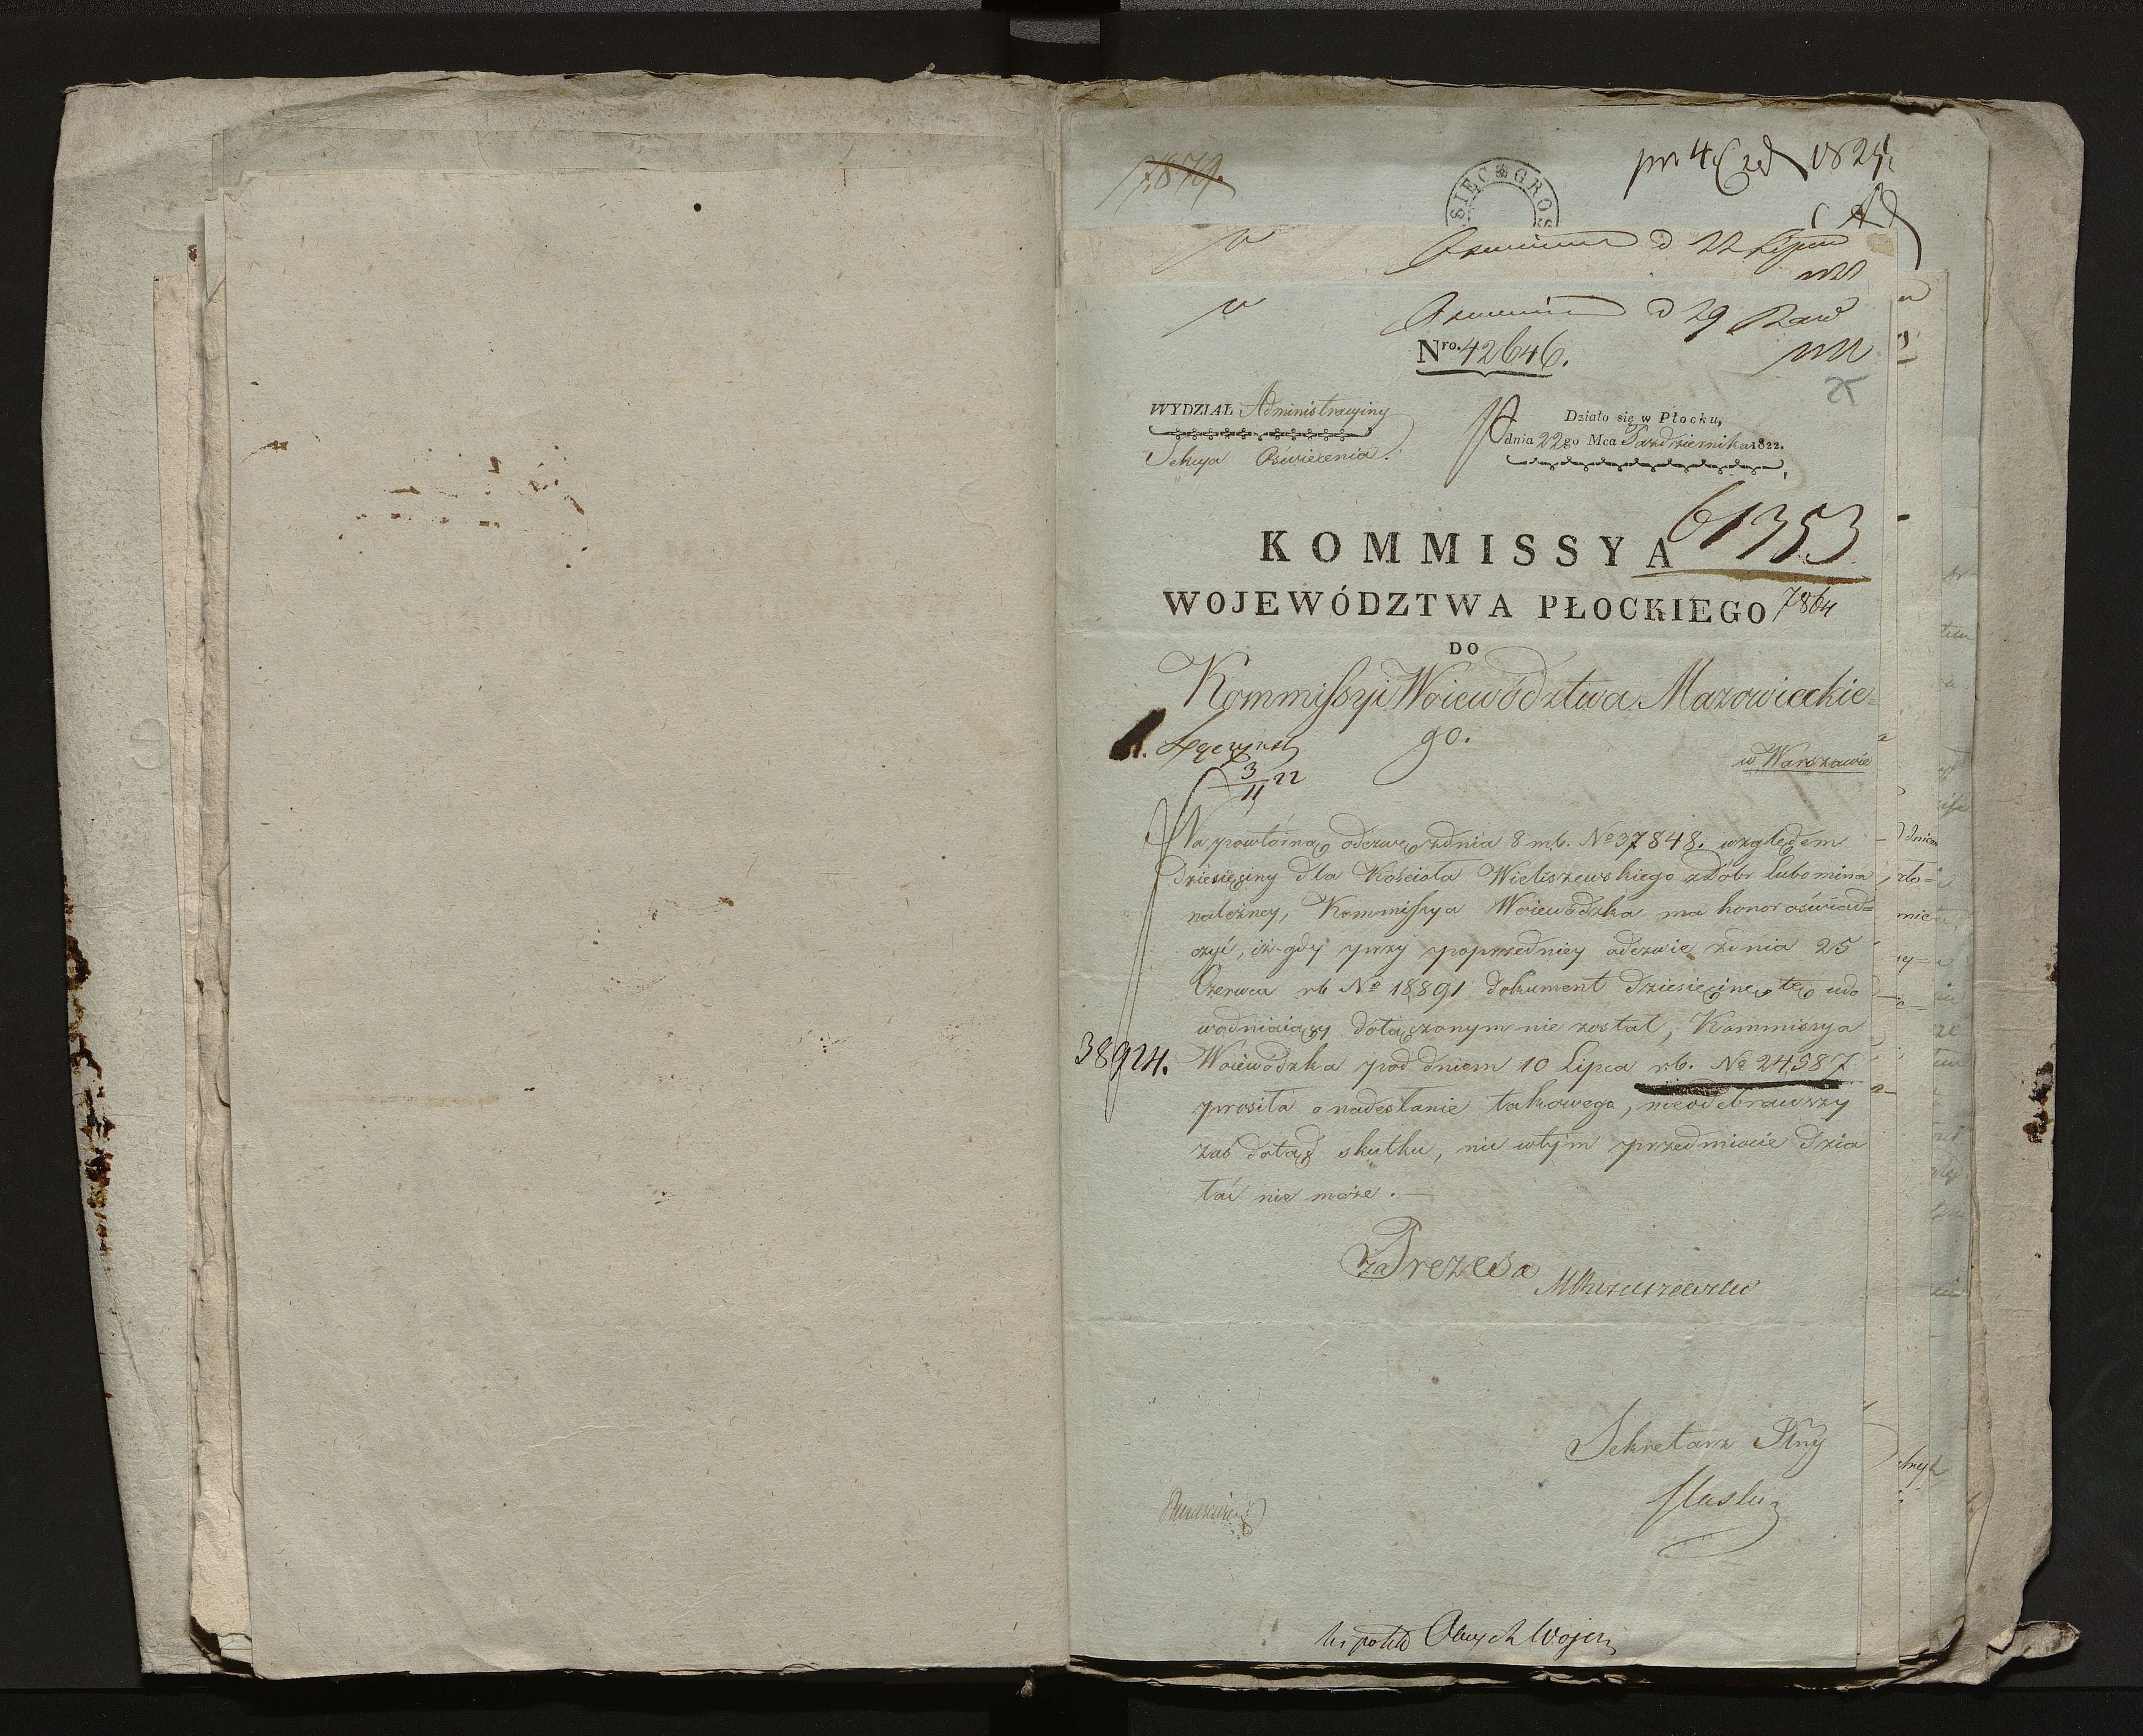 17879.
SIĘC GROS
pr. 4 1824
d 22 Lipca
d 29 Paźd
Nro. 42646.
25
WYDZIAŁ Administracyiny
Sekcya Oswiecenia.
Działo się w Płocku,
dnia 22go Mca Października 1822.
61353
KOMMISSYA
WOJEWÓDZTWA PŁOCKIEGO
7864
DO
Kommissyi Woiewództwa Mazowieckie=
go.
w Warszawie
3/11 22
Na powtórną odezwę zdnia 8 m.b. No 37848. względem
dziesięciny dla Kościoła Wieliszewskiego z Dóbr Lubomina
należney, Kommissya Woiewódzka ma honor oświad=
czyć, iż gdy przy poprzedniey odezwie zdnia 25
Czerwca rb No 18891 dokument dziesięcinę tę udo
wodniaiący dołączonym nie został, Kommissya
38924.
Woiewódzka pod dniem 10 Lipca rb. No 24587
prosiła o nadesłanie takowego, nieodebrawszy
zaś dotąd skutku, nic wtym przedmiocie dzia
łać nie może.
za Prezesa
Sekretarz Jlny